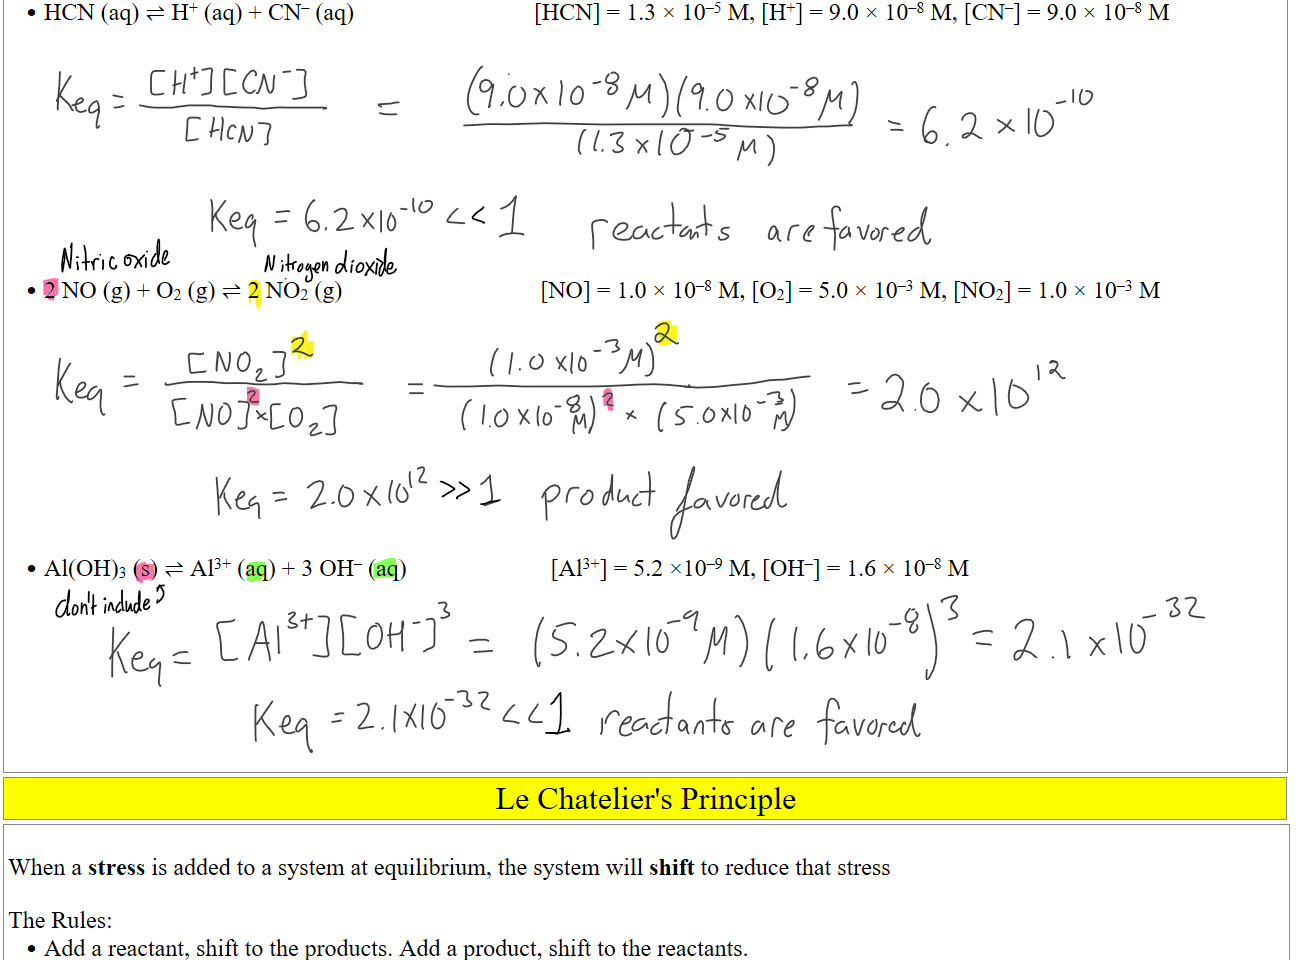 • HCN (aq) ⇌ H⁺ (aq) + CN⁻ (aq) [HCN] = 1.3 × 10⁻⁵ M, [H⁺] = 9.0 × 10⁻⁸ M, [CN⁻] = 9.0 × 10⁻⁸ M
Keq = [H⁺][CN⁻] / [HCN] = (9.0×10⁻⁸ M)(9.0×10⁻⁸ M) / (1.3×10⁻⁵ M) = 6.2×10⁻¹⁰
Keq = 6.2×10⁻¹⁰ << 1 reactants are favored
Nitric oxide Nitrogen dioxide
• 2 NO (g) + O₂ (g) ⇌ 2 NO₂ (g) [NO] = 1.0 × 10⁻⁸ M, [O₂] = 5.0 × 10⁻³ M, [NO₂] = 1.0 × 10⁻³ M
Keq = [NO₂]² / [NO]²×[O₂] = (1.0×10⁻³ M)² / (1.0×10⁻⁸ M)² × (5.0×10⁻³ M) = 2.0×10¹²
Keq = 2.0×10¹² >> 1 product favored
• Al(OH)₃ (s) ⇌ Al³⁺ (aq) + 3 OH⁻ (aq) [Al³⁺] = 5.2 ×10⁻⁹ M, [OH⁻] = 1.6 × 10⁻⁸ M
don't include
Keq = [Al³⁺][OH⁻]³ = (5.2×10⁻⁹ M)(1.6×10⁻⁸)³ = 2.1×10⁻³²
Keq = 2.1×10⁻³² << 1 reactants are favored
Le Chatelier's Principle
When a stress is added to a system at equilibrium, the system will shift to reduce that stress
The Rules:
• Add a reactant, shift to the products. Add a product, shift to the reactants.